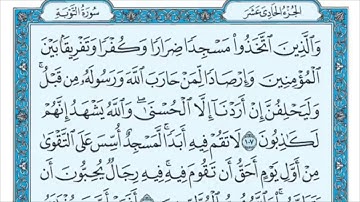 الجزء الحادى عشر
سورة التوبة
وَالَّذِينَ اتَّخَذُوا مَسْجِدًا ضِرَارًا وَكُفْرًا وَتَفْرِيقًا بَيْنَ
الْمُؤْمِنِينَ وَإِرْصَادًا لِّمَنْ حَارَبَ اللَّهَ وَرَسُولَهُ مِن قَبْلُ
وَلَيَحْلِفُنَّ إِنْ أَرَدْنَا إِلَّا الْحُسْنَىٰ وَاللَّهُ يَشْهَدُ إِنَّهُمْ
لَكَاذِبُونَ ١٠٧ لَا تَقُمْ فِيهِ أَبَدًا لَّمَسْجِدٌ أُسِّسَ عَلَى التَّقْوَىٰ
مِنْ أَوَّلِ يَوْمٍ أَحَقُّ أَن تَقُومَ فِيهِ فِيهِ رِجَالٌ يُحِبُّونَ أَن